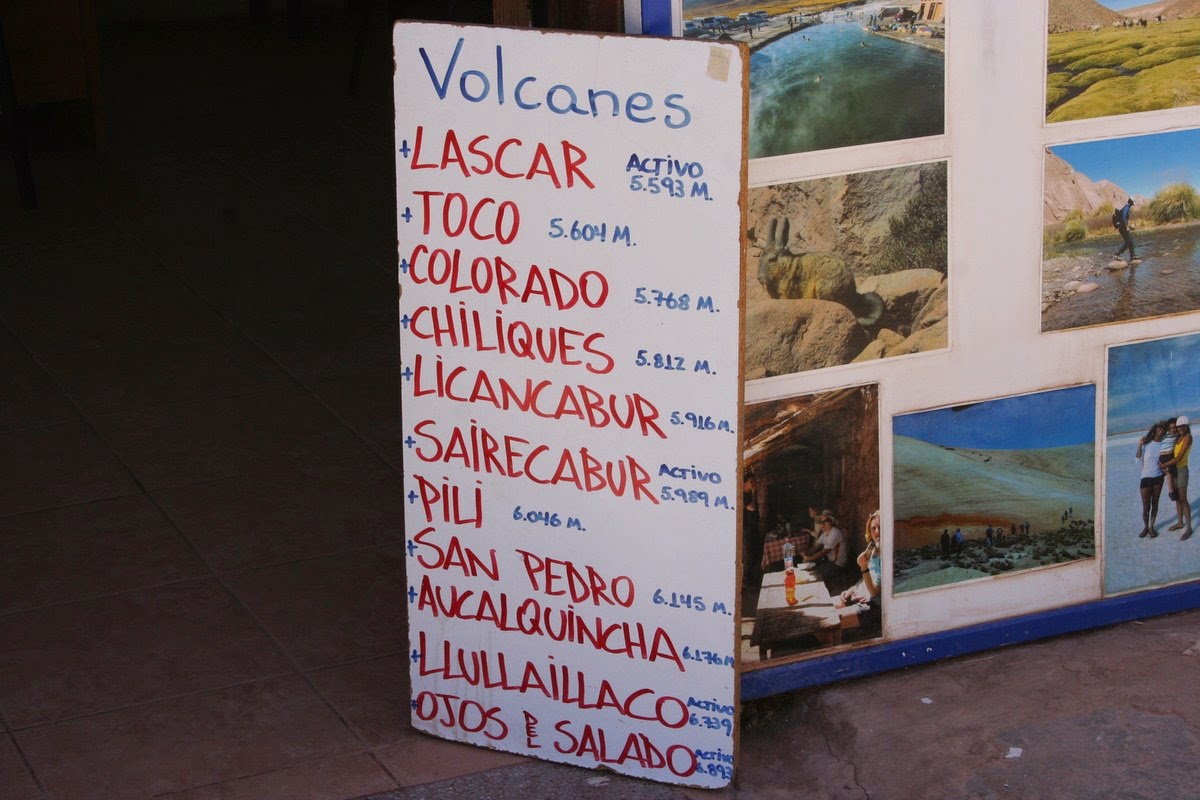 Volcanes
+LASCAR ACTIVO 5.593 M.
+TOCO 5.604 M.
+COLORADO 5.768 M.
+CHILIQUES 5.812 M.
+LICANCABUR 5.916 M.
+SAIRECABUR ACTIVO 5.989 M.
+PILI 6.046 M.
+SAN PEDRO 6.145 M.
+AUCALQUINCHA 6.176 M
+LLULLAILLACO ACTIVO 6.739
+OJOS DEL SALADO ACTIVO 6.893